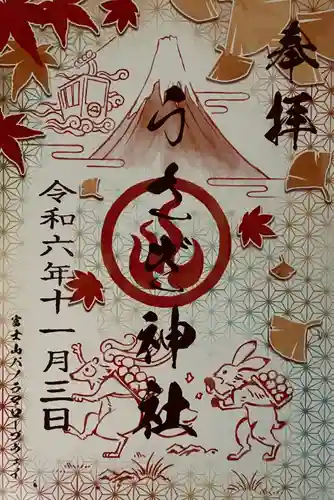 奉拝
うさぎ神社
令和六年十一月三日
富士山パノラマロープウェイ